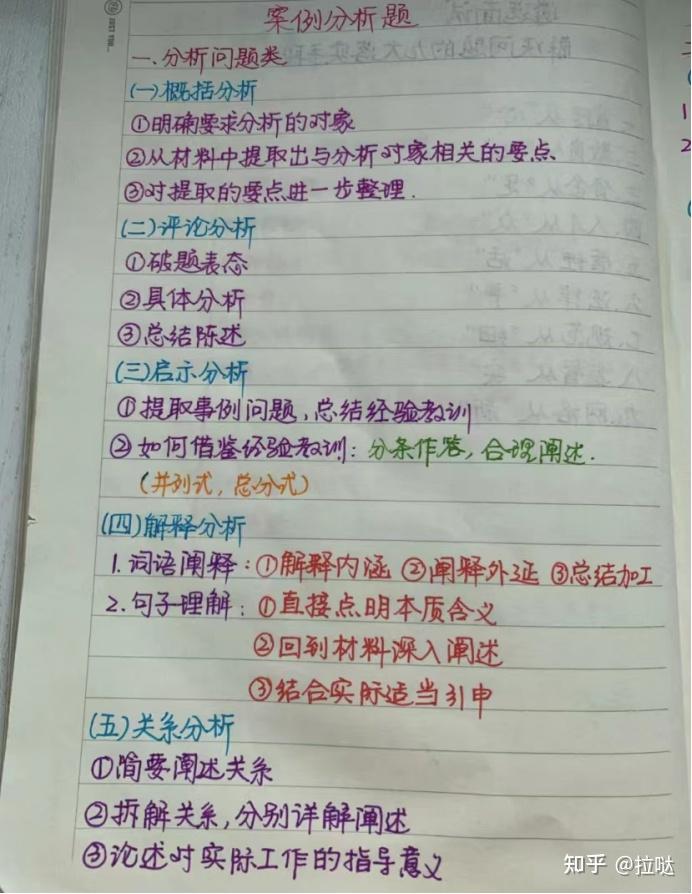 案例分析题
一、分析问题类
(一)概括分析
①明确要求分析的对象
②从材料中提取出与分析对象相关的要点、
③对提取的要点进一步整理.
(二)评论分析
①破题表态
②具体分析
③总结陈述
(三)启示分析
①提取事例问题,总结经验教训
②如何借鉴经验教训:分条作答,合理阐述.
(并列式,总分式)
(四)解释分析
1.词语阐释:①解释内涵 ②阐释外延 ③总结加工
2.句子理解:①直接点明本质含义
②回到材料深入阐述
③结合实际适当引申
(五)关系分析
①简要阐述关系
②拆解关系,分别详解阐述
③论述对实际工作的指导意义
知乎 @拉哒